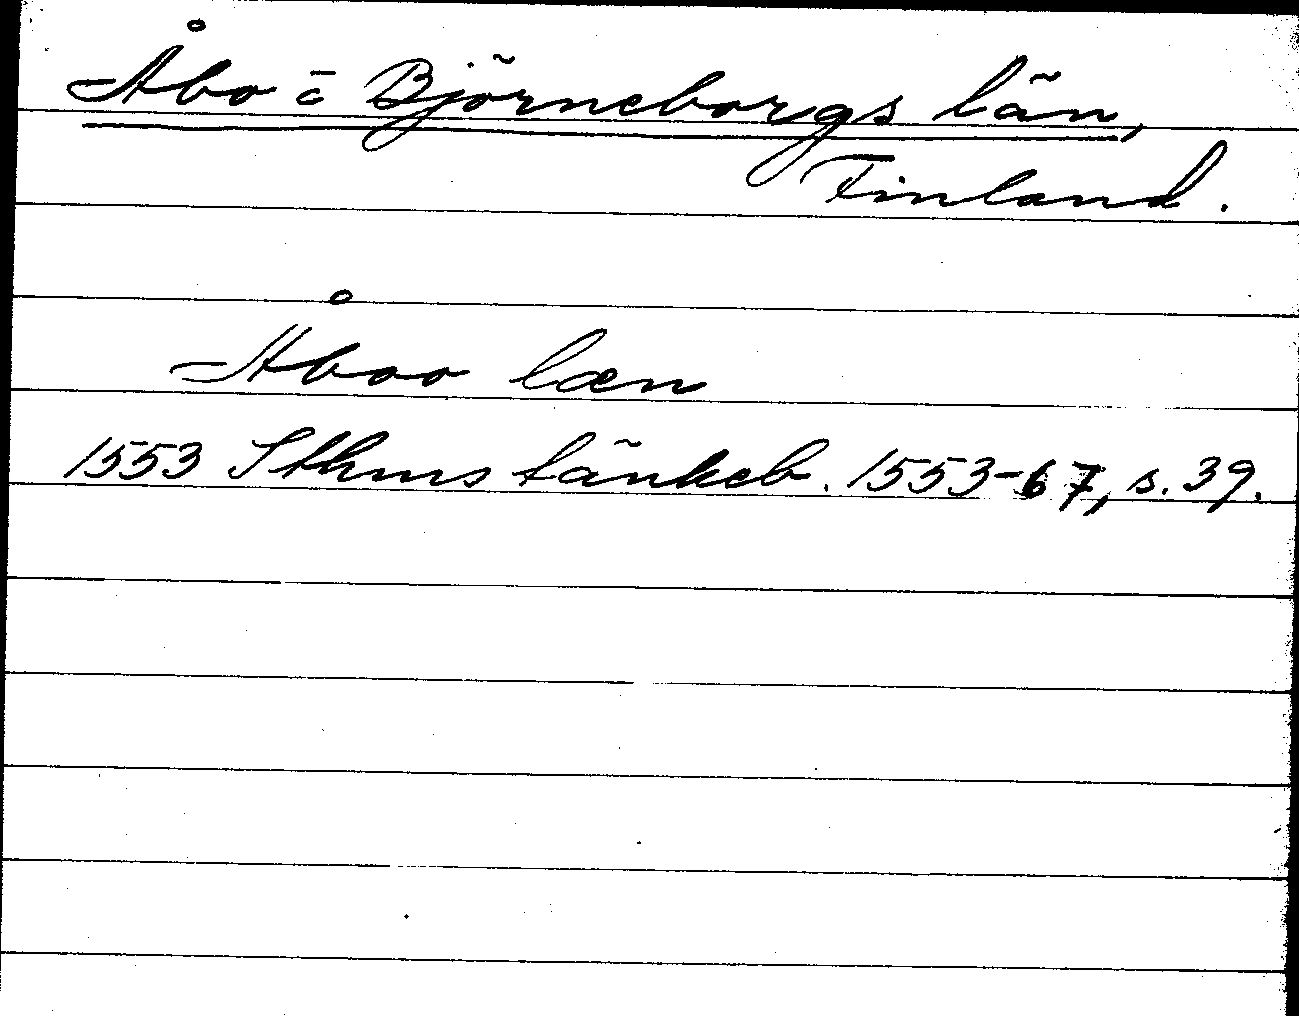 Åbo o Björneborgs län,
Finland.
Åboo læn
1553 Sthms tänkeb. 1553-67, s. 39.